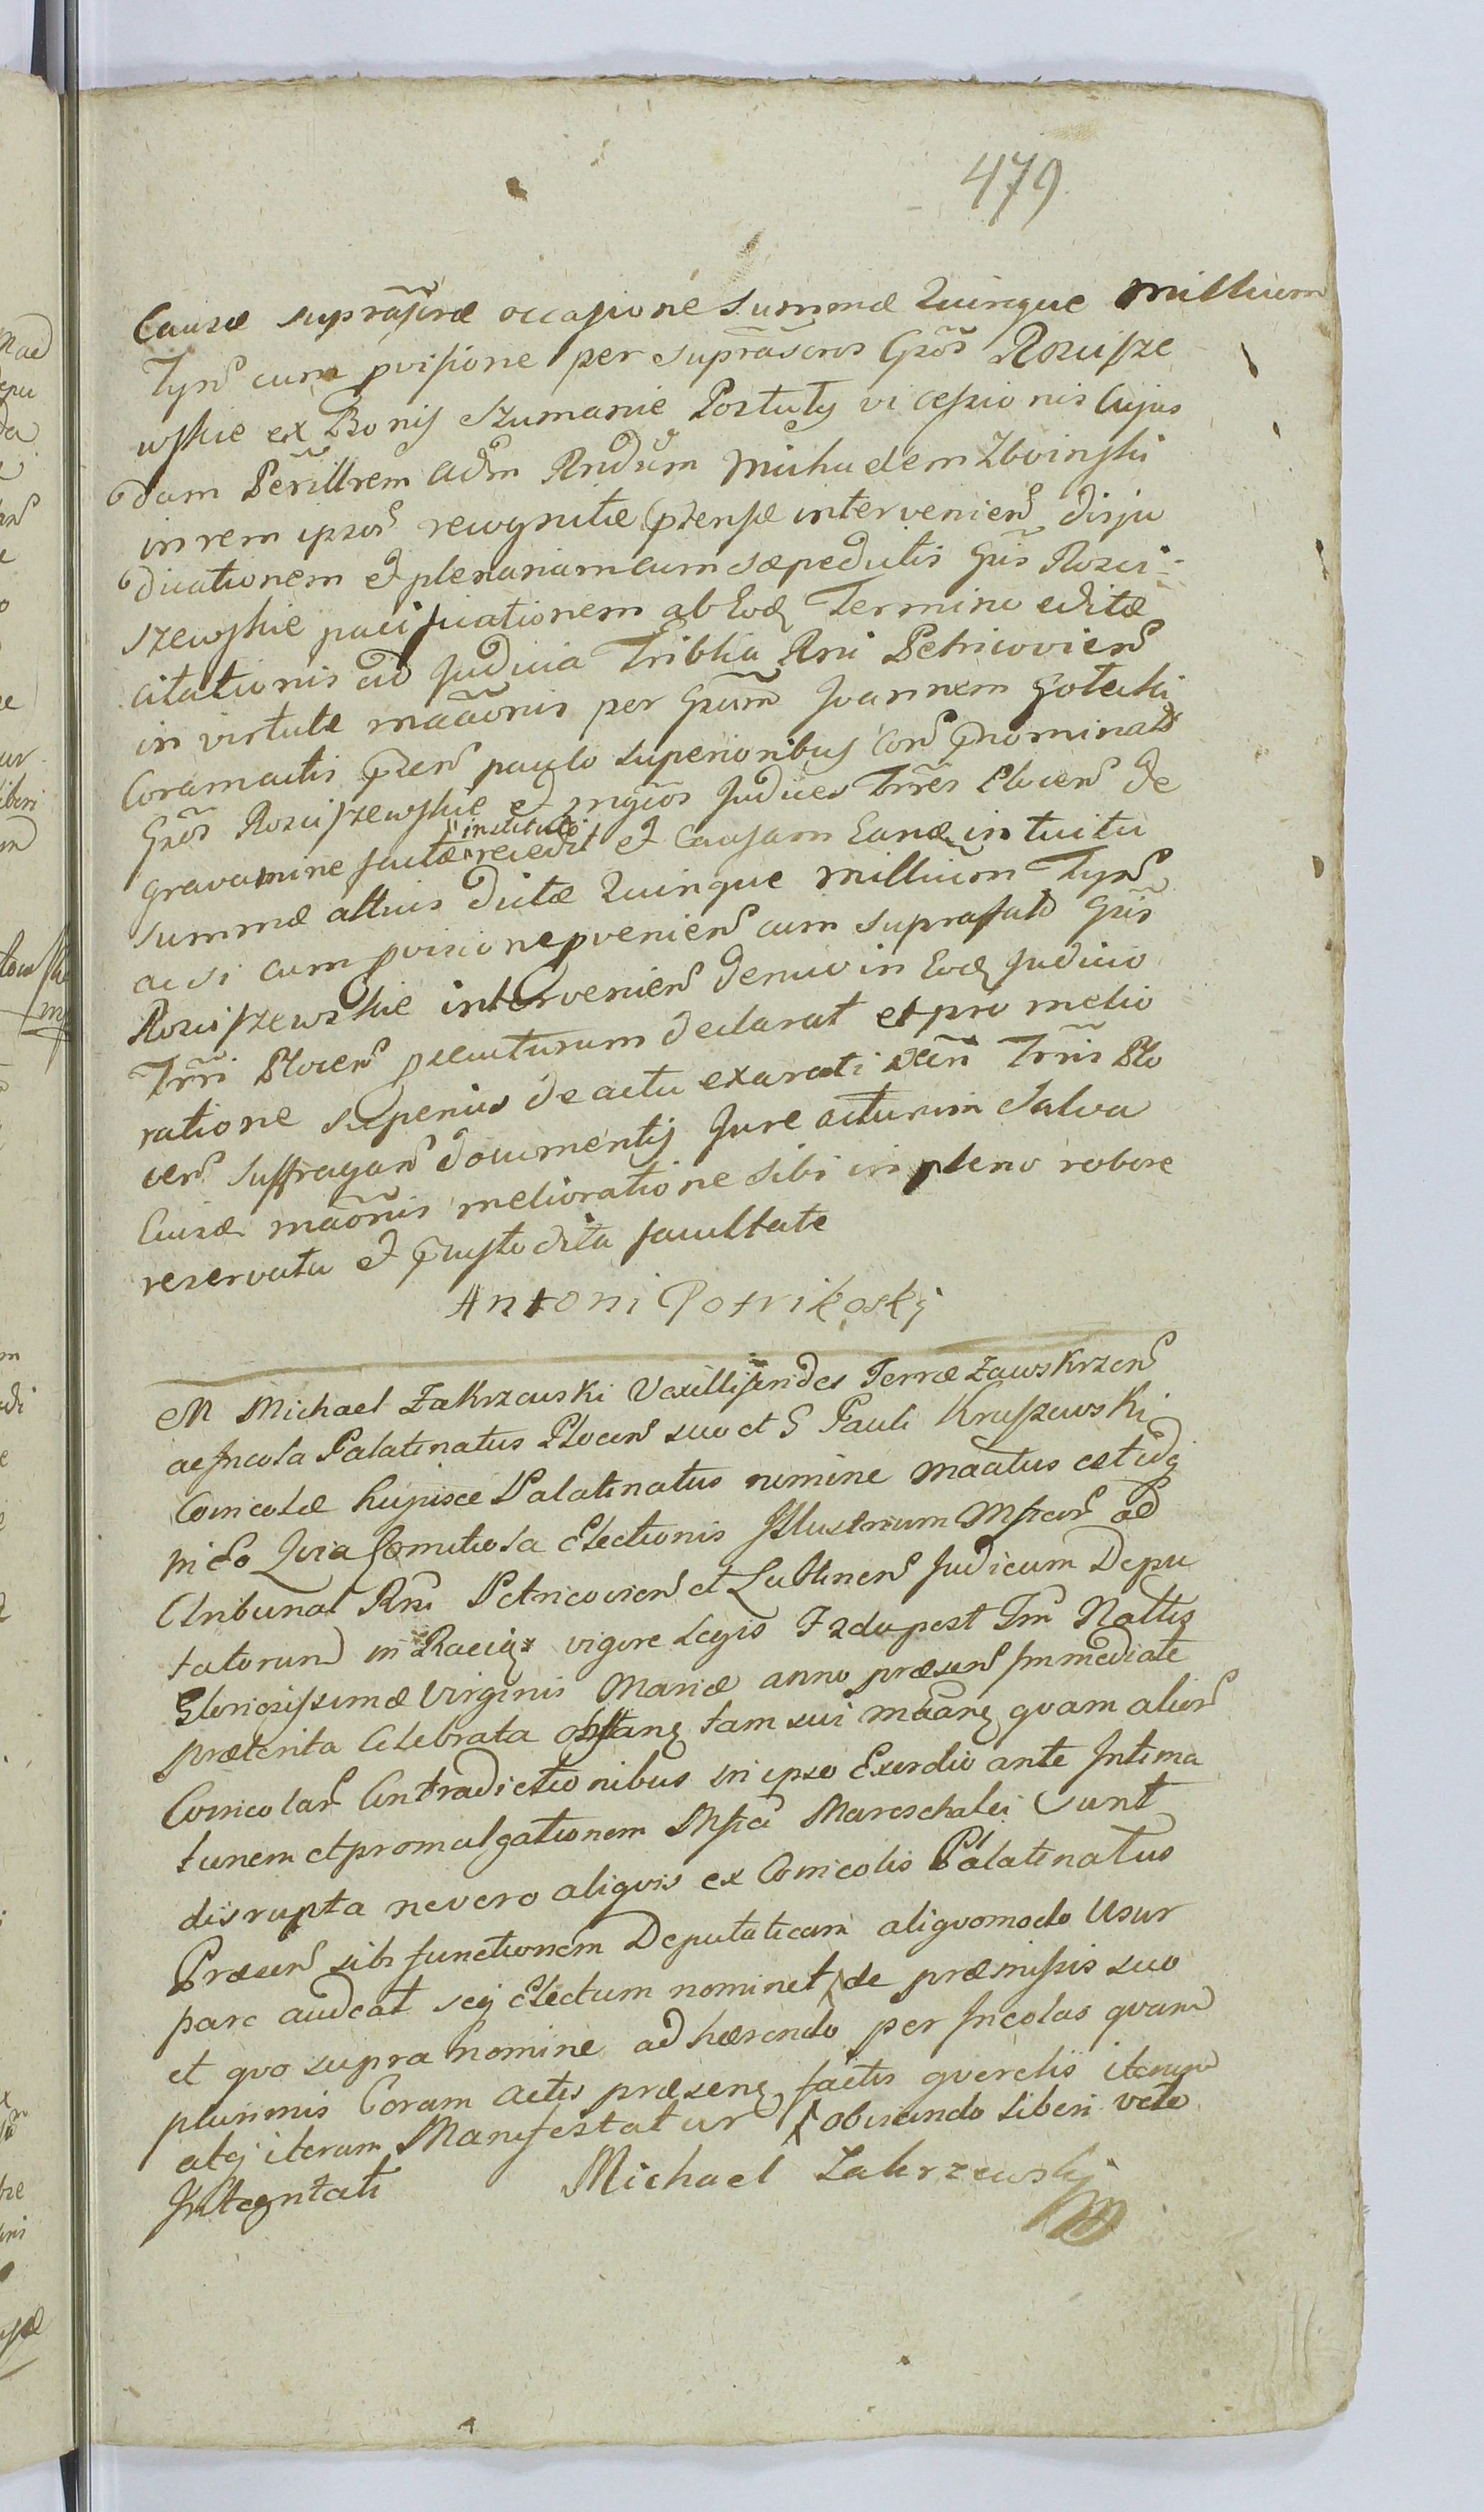 479
Causæ suprascræ occasione summæ Quinque Millium
Tyn̄ cum pvisione per suprascros Gsos̃ Rosciſze
wſkie ex Bonis Szumanie Postulis vi cessionis Cujus
dam Perillrem Adm̃ Rndum Michaelem Zboinſki
in rem ipsor̃ recognitæ ptensæ intervenien̄ diju
dicationem et plenariam cum sæpedictis Gsis Rosci-
szewſkie pacificationem ab Eoq Termino editæ
citationis ad Judicia Triblia Rni Petricovien̄
in virtute maãonis per Gsum Joannem Gotecki
Coram actis pzen̄ paulo superioribus Con̄ pnominats
Gsos̃ Rosciſzewſkie et mgcos̃ Judices Trr̃es Plocen̄ de
gravamine factæ "institut." recedit et Causam Eanq in tuitu
summæ altius dictæ Quinque millium Tyn̄
acsi cum pvisione pvenien̄ cum suprafats Gsis̃
Rosciſzewskie intervenien̄ denuo in Eoq Judicio
Trr̃i Plocen̄ pseculturum declarat et pro melio
ratione superius de actu exarati Trr̃is Plo
cen̄ suffragan̄ documentis Jure acturum Salva
Ejusd. maõnis melioratione sibi in pleno robore
reservata et pcustodita facultate
Antoni Potrikoskj
M Michael Zakrzewski Vexilliferides Terræ Zawskrzen̄
ac Incola Palatinatus Plocen̄ suo et G Pauli Kruſzewski
Coincolæ hujusce Palatinatus nomine maãtus est idq
in Eo Quia Comitiola Electionis Illustrium Mfcor̃ ad
Tribunal Rni Petricovien̄ et Lublinen̄ Judicum Depu
tatorum in Raciąz vigore Legis Fzdapest Im Nattis
Gloriosissimæ Virginis Mariæ anno præsen̄ Immediate
præterita Celebrata obstanq tam sui maãnq quam alior̃
Coincolar̃ Contradictionibus in ipso Exordio ante Intima
tionem et promulgationem Mfci Mareschalci sunt
disrupta ne vero aliquis ex Coincolis Palatinatus
Præsen̄ sibi functionem Deputaticam aliquomodo Usur
pare audeat seq Electum nominet de præmissis suo
et quo supra nomine adhærendo per Incolas quam
plurimis Coram actis præsenq factis querelis iterum
atq iterum Manifestatur obviando liberi veto
Integritati
Michael Zakrzewskj